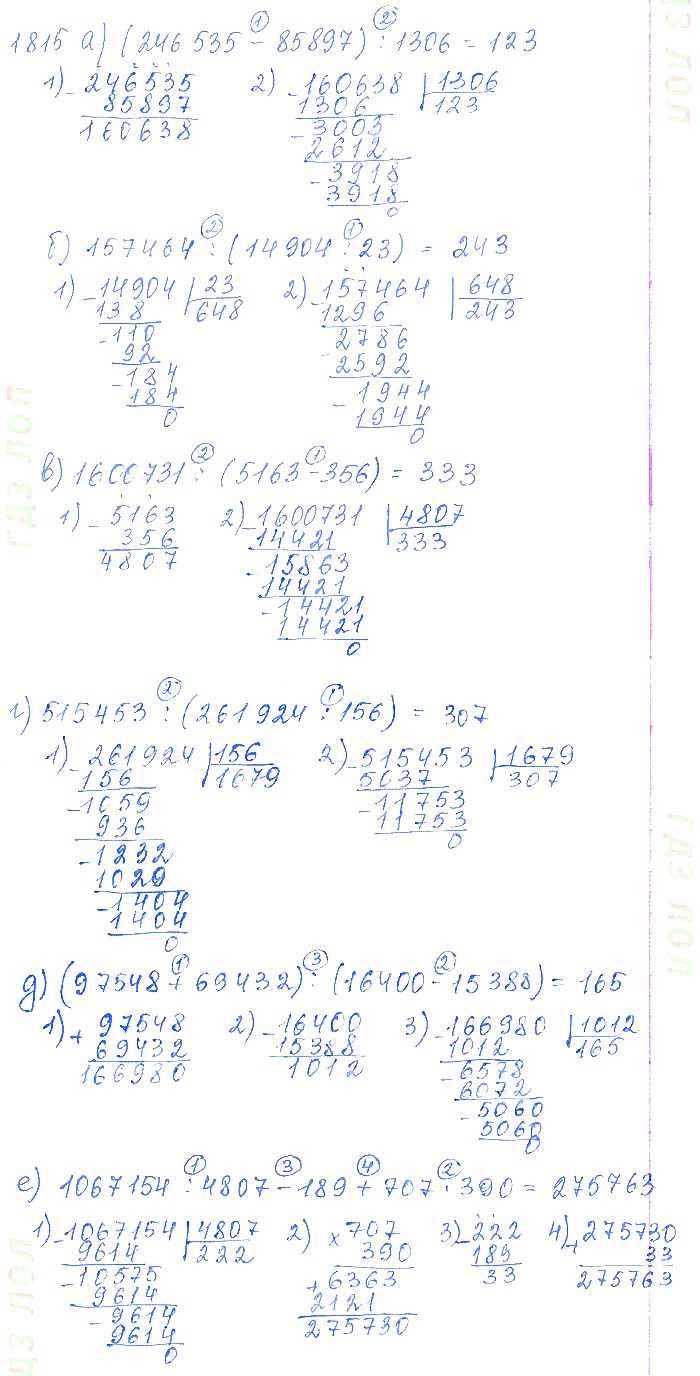 1815 а) (246535 - 85897) : 1306 = 123
1) - 246535
85897
160638
2) - 160638 | 1306
1306 | 123
- 3003
2612
- 3918
3918
0
б) 157464 : (14904 : 23) = 243
1) - 14904 | 23
138 | 648
- 110
92
- 184
184
0
2) - 157464 | 648
1296 | 243
- 2786
2592
- 1944
1944
0
в) 1600731 : (5163 - 356) = 333
1) - 5163
356
4807
2) - 1600731 | 4807
14421 | 333
- 15863
14421
- 14421
14421
0
г) 515453 : (261924 : 156) = 307
1) - 261924 | 156
156 | 1679
- 1059
936
- 1232
1029
- 1404
1404
0
2) - 515453 | 1679
5037 | 307
- 11753
11753
0
д) (97548 + 69432) : (16400 - 15388) = 165
1) + 97548
69432
166980
2) - 16400
15388
1012
3) - 166980 | 1012
1012 | 165
- 6578
6072
- 5060
5060
0
е) 1067154 : 4807 - 189 + 707 · 390 = 275763
1) - 1067154 | 4807
9614 | 222
- 10575
9614
- 9614
9614
0
2) x 707
390
+ 6363
2121
275730
3) - 222
189
33
4) + 275730
33
275763
гдз лол
гдз лол
гдз лол
гдз лол